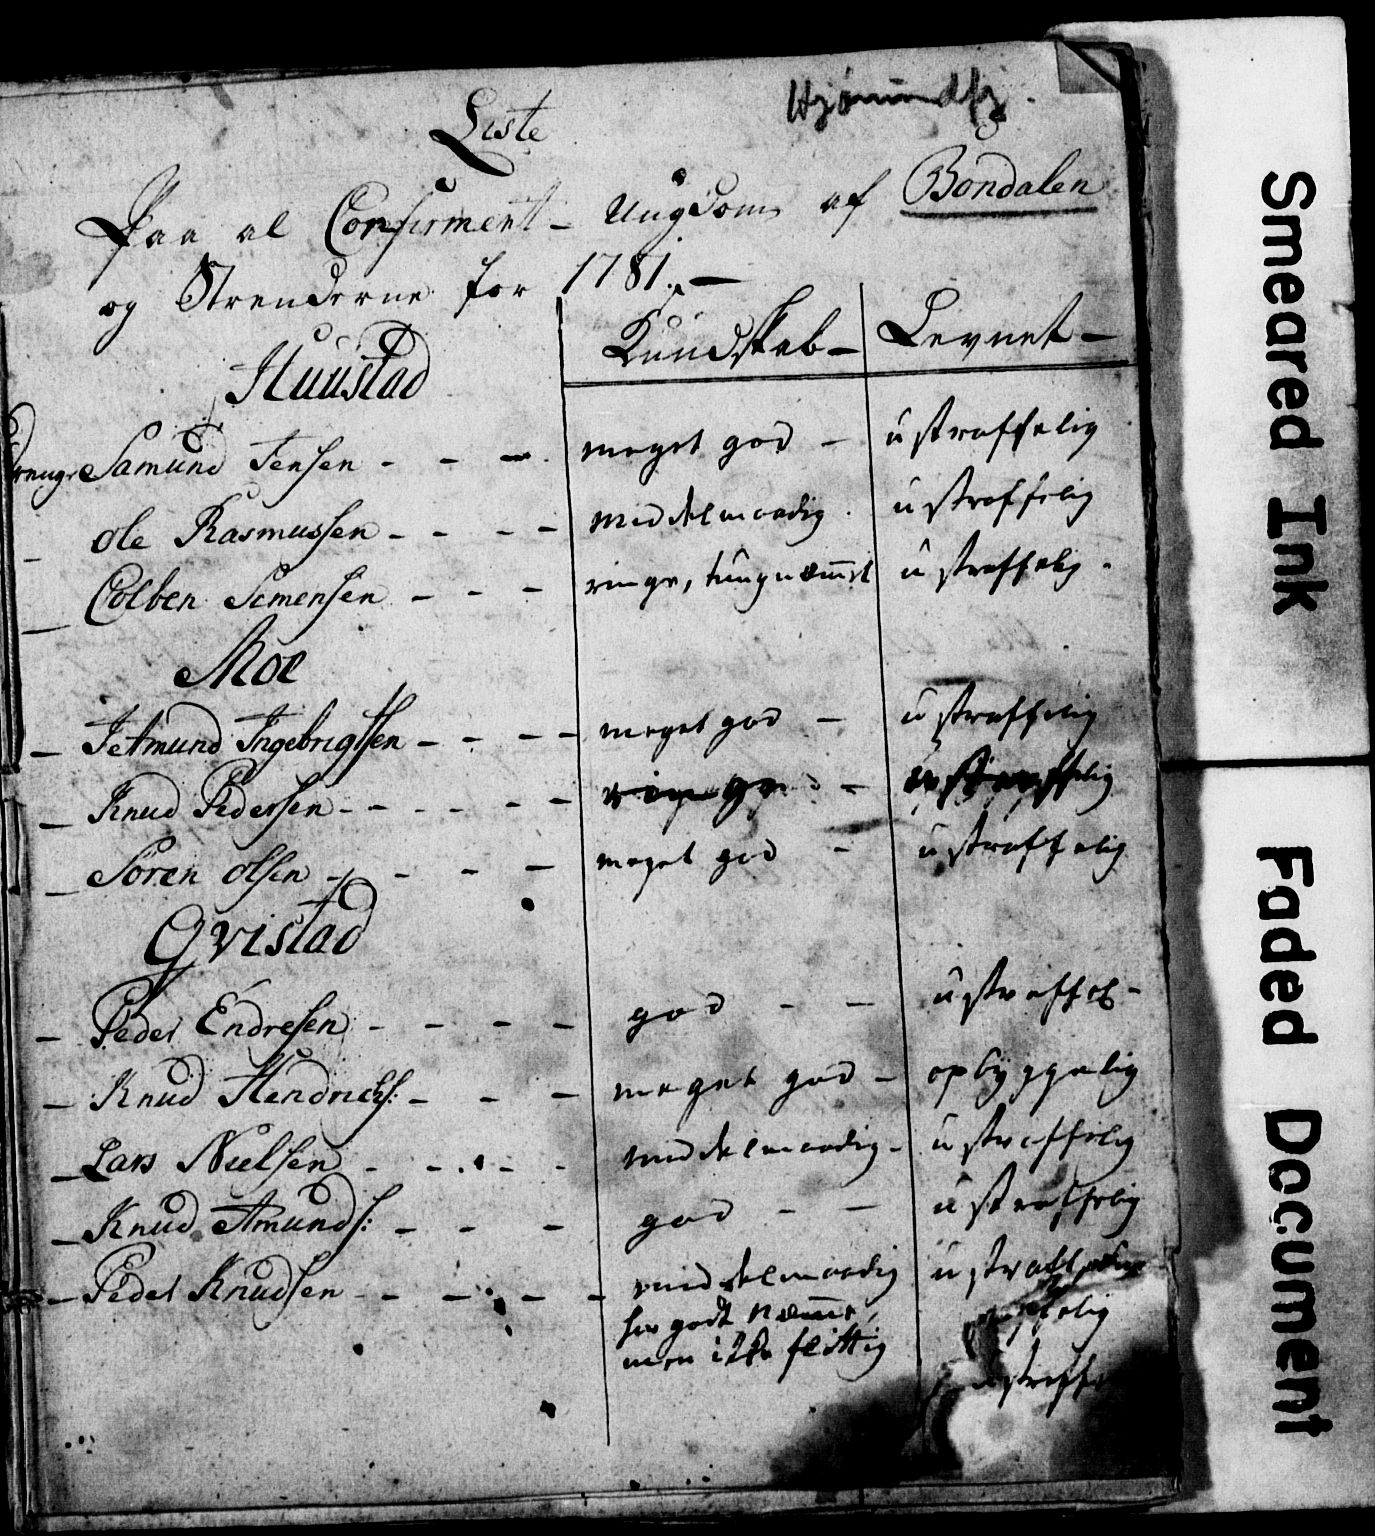 Hjørundfj.
Liste
Paa al Confirment- Ungdom af Bondalen
og Strenderne for 1781. —
Kundskab — Levnet —
Huustad
Drenge Samund Jensen - - - meget god - ustraffelig
- Ole Rasmussen - - - - middelmaadig . ustraffelig
- Colben Simensen - - - ringe, tungnæmmet ustraffelig .
Moe
- Jetmund Ingebrigtsen - - - - meget god - ustraffelig
- Knud Pedersen - - - - - - ustraffelig
- Søren Olsen - - - - meget god - ustraffelig
Qvistad
- Peder Endresen - - - - god - - ustraffel -
- Knud Hendrichs: - - - meget god - opbyggelig
- Lars Nielsen - - - - middelmaadig - ustraffelig
- Knud Amunds: - - - god - - ustraffelig
- Peder Knudsen - - - - - middelmaadig
har godt Næmme,
men ikke flittig
Smeared Ink
Faded Document